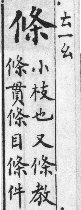 ㄊㄧㄠ
條
小枝也又條教
條貫條目條件